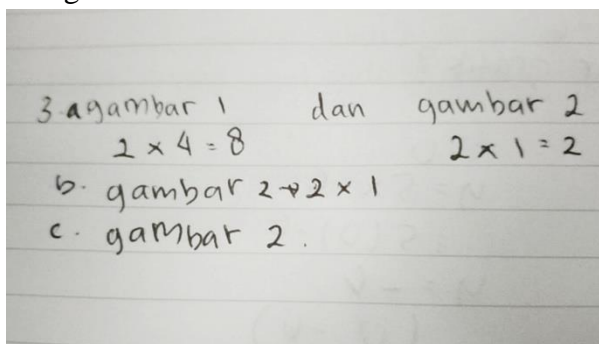 3. a gambar 1 dan gambar 2
2 × 4 = 8 2 × 1 = 2
b. gambar 2 → 2 × 1
c. gambar 2.